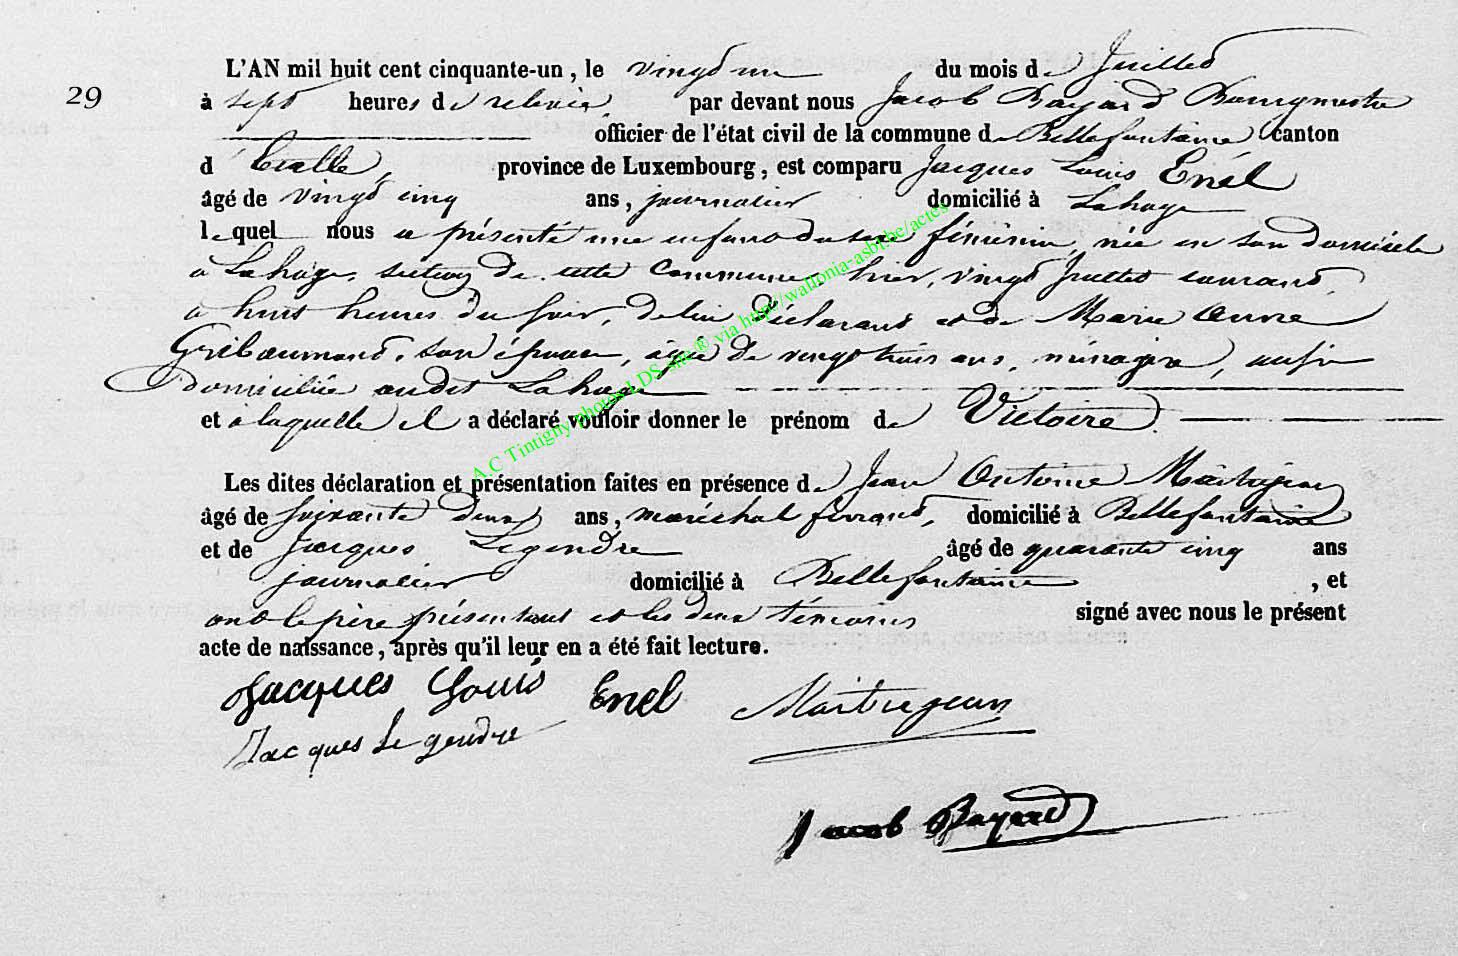 29
L'AN mil huit cent cinquante-un, le vingt un du mois de Juillet
à sept heures de relevée, par devant nous Jacob Bayard Bourgmestre
officier de l'état civil de la commune de Bellefontaine canton
d'Etalle, province de Luxembourg, est comparu Jacques Louis Enel
âgé de vingt cinq ans, journalier domicilié à Lahage
lequel nous a présenté une enfant du sexe féminin, née en son domicile
à Lahage, section de cette commune, hier, vingt Juillet courant,
à huit heures du soir, de lui déclarant et de Marie Anne
Gribaumont, son épouse, âgée de vingt trois ans, ménagère, aussi
domiciliée audit Lahage
et à laquelle il a déclaré vouloir donner le prénom de Victoire.
Les dites déclaration et présentation faites en présence de Jean Antoine Maitrejean
âgé de soixante deux ans, maréchal ferrant, domicilié à Bellefontaine
et de Jacques Legendre âgé de quarante cinq ans
journalier domicilié à Bellefontaine, et
ont le père présentant et les deux témoins signé avec nous le présent
acte de naissance, après qu'il leur en a été fait lecture.
Jacques Louis Enel Maitrejean
Jacques Legendre
Jacob Bayard
A.C Tintigny photos LDS site ® via http://wallonia-asbl.be/actes